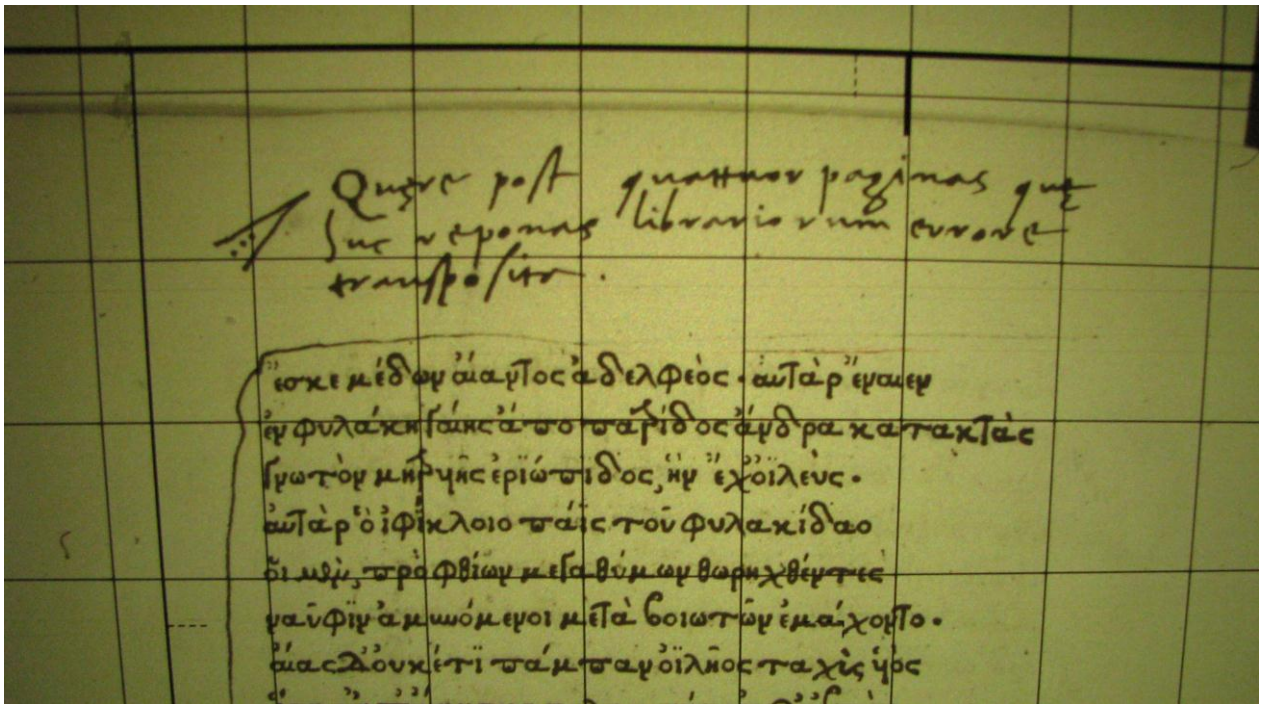 Quęre post quattuor paginas quę
huc reponas librariorum errore
transposita .
ἔσκε μέδων αἴαντος ἀδελφεὸς · αὐτὰρ ἔναιεν
ἐν φυλάκη γαίης ἄπο πατρίδος ἄνδρα κατακτὰς
γνωτὸν μητρυιῆς ἐριώπιδος, ἣν ἔχ' ὀϊλεὺς ·
αὐτὰρ ὁ ἰφίκλοιο πάϊς τοῦ φυλακίδαο
οἱ μὲν, πρὸ φθίων μεγαθύμων θωρηχθέντες
ναῦφιν ἀμυνόμενοι μετὰ βοιωτῶν ἐμάχοντο ·
αἴας δ' οὐκέτι πάμπαν ὀϊλῆος ταχὺς υἱὸς